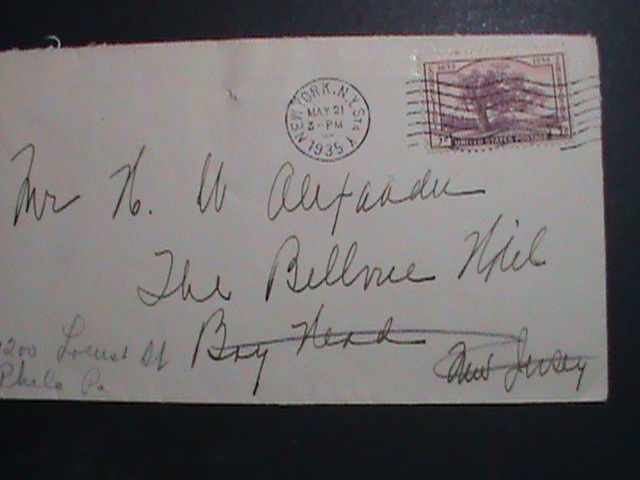 NEW YORK, N.Y. STA Y
MAY 21
3-PM
1935
1635 1935
3¢ UNITED STATES POSTAGE 3¢
Mr H. W Alexander
The Bellvue Hotel
Bay Head
New Jersey
1200 Locust St
Phila Pa